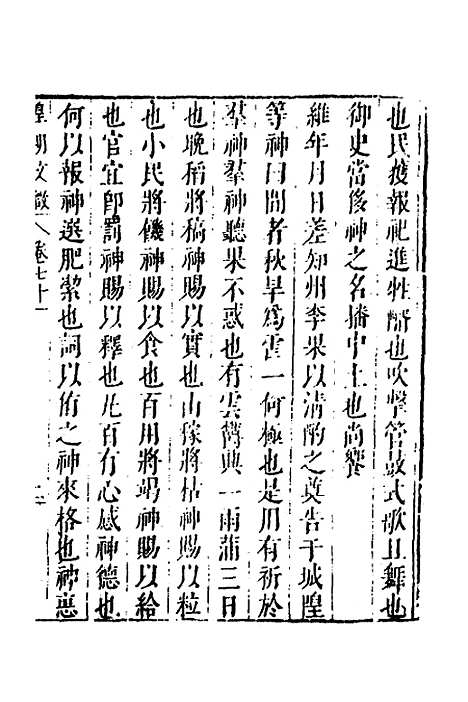 也民獲報祀進牲醑也吹擊管鼓式歌且舞也
御史當俊神之名播中土也尚饗
維年月日差知州李果以清酌之奠告于城隍
等神曰間者秋旱為雪一何極也是用有祈於
羣神羣神聽果不惑也有雲鬱興一雨蒲三日
也晚稻將槁神賜以實也山稼將枯神賜以粒
也小民將饑神賜以食也百用將竭神賜以給
也官宜卽罰神賜以釋也凡百有心感神德也
何以報神選肥潔也詞以侑之神來格也神惡
皇明文徵 卷七十一